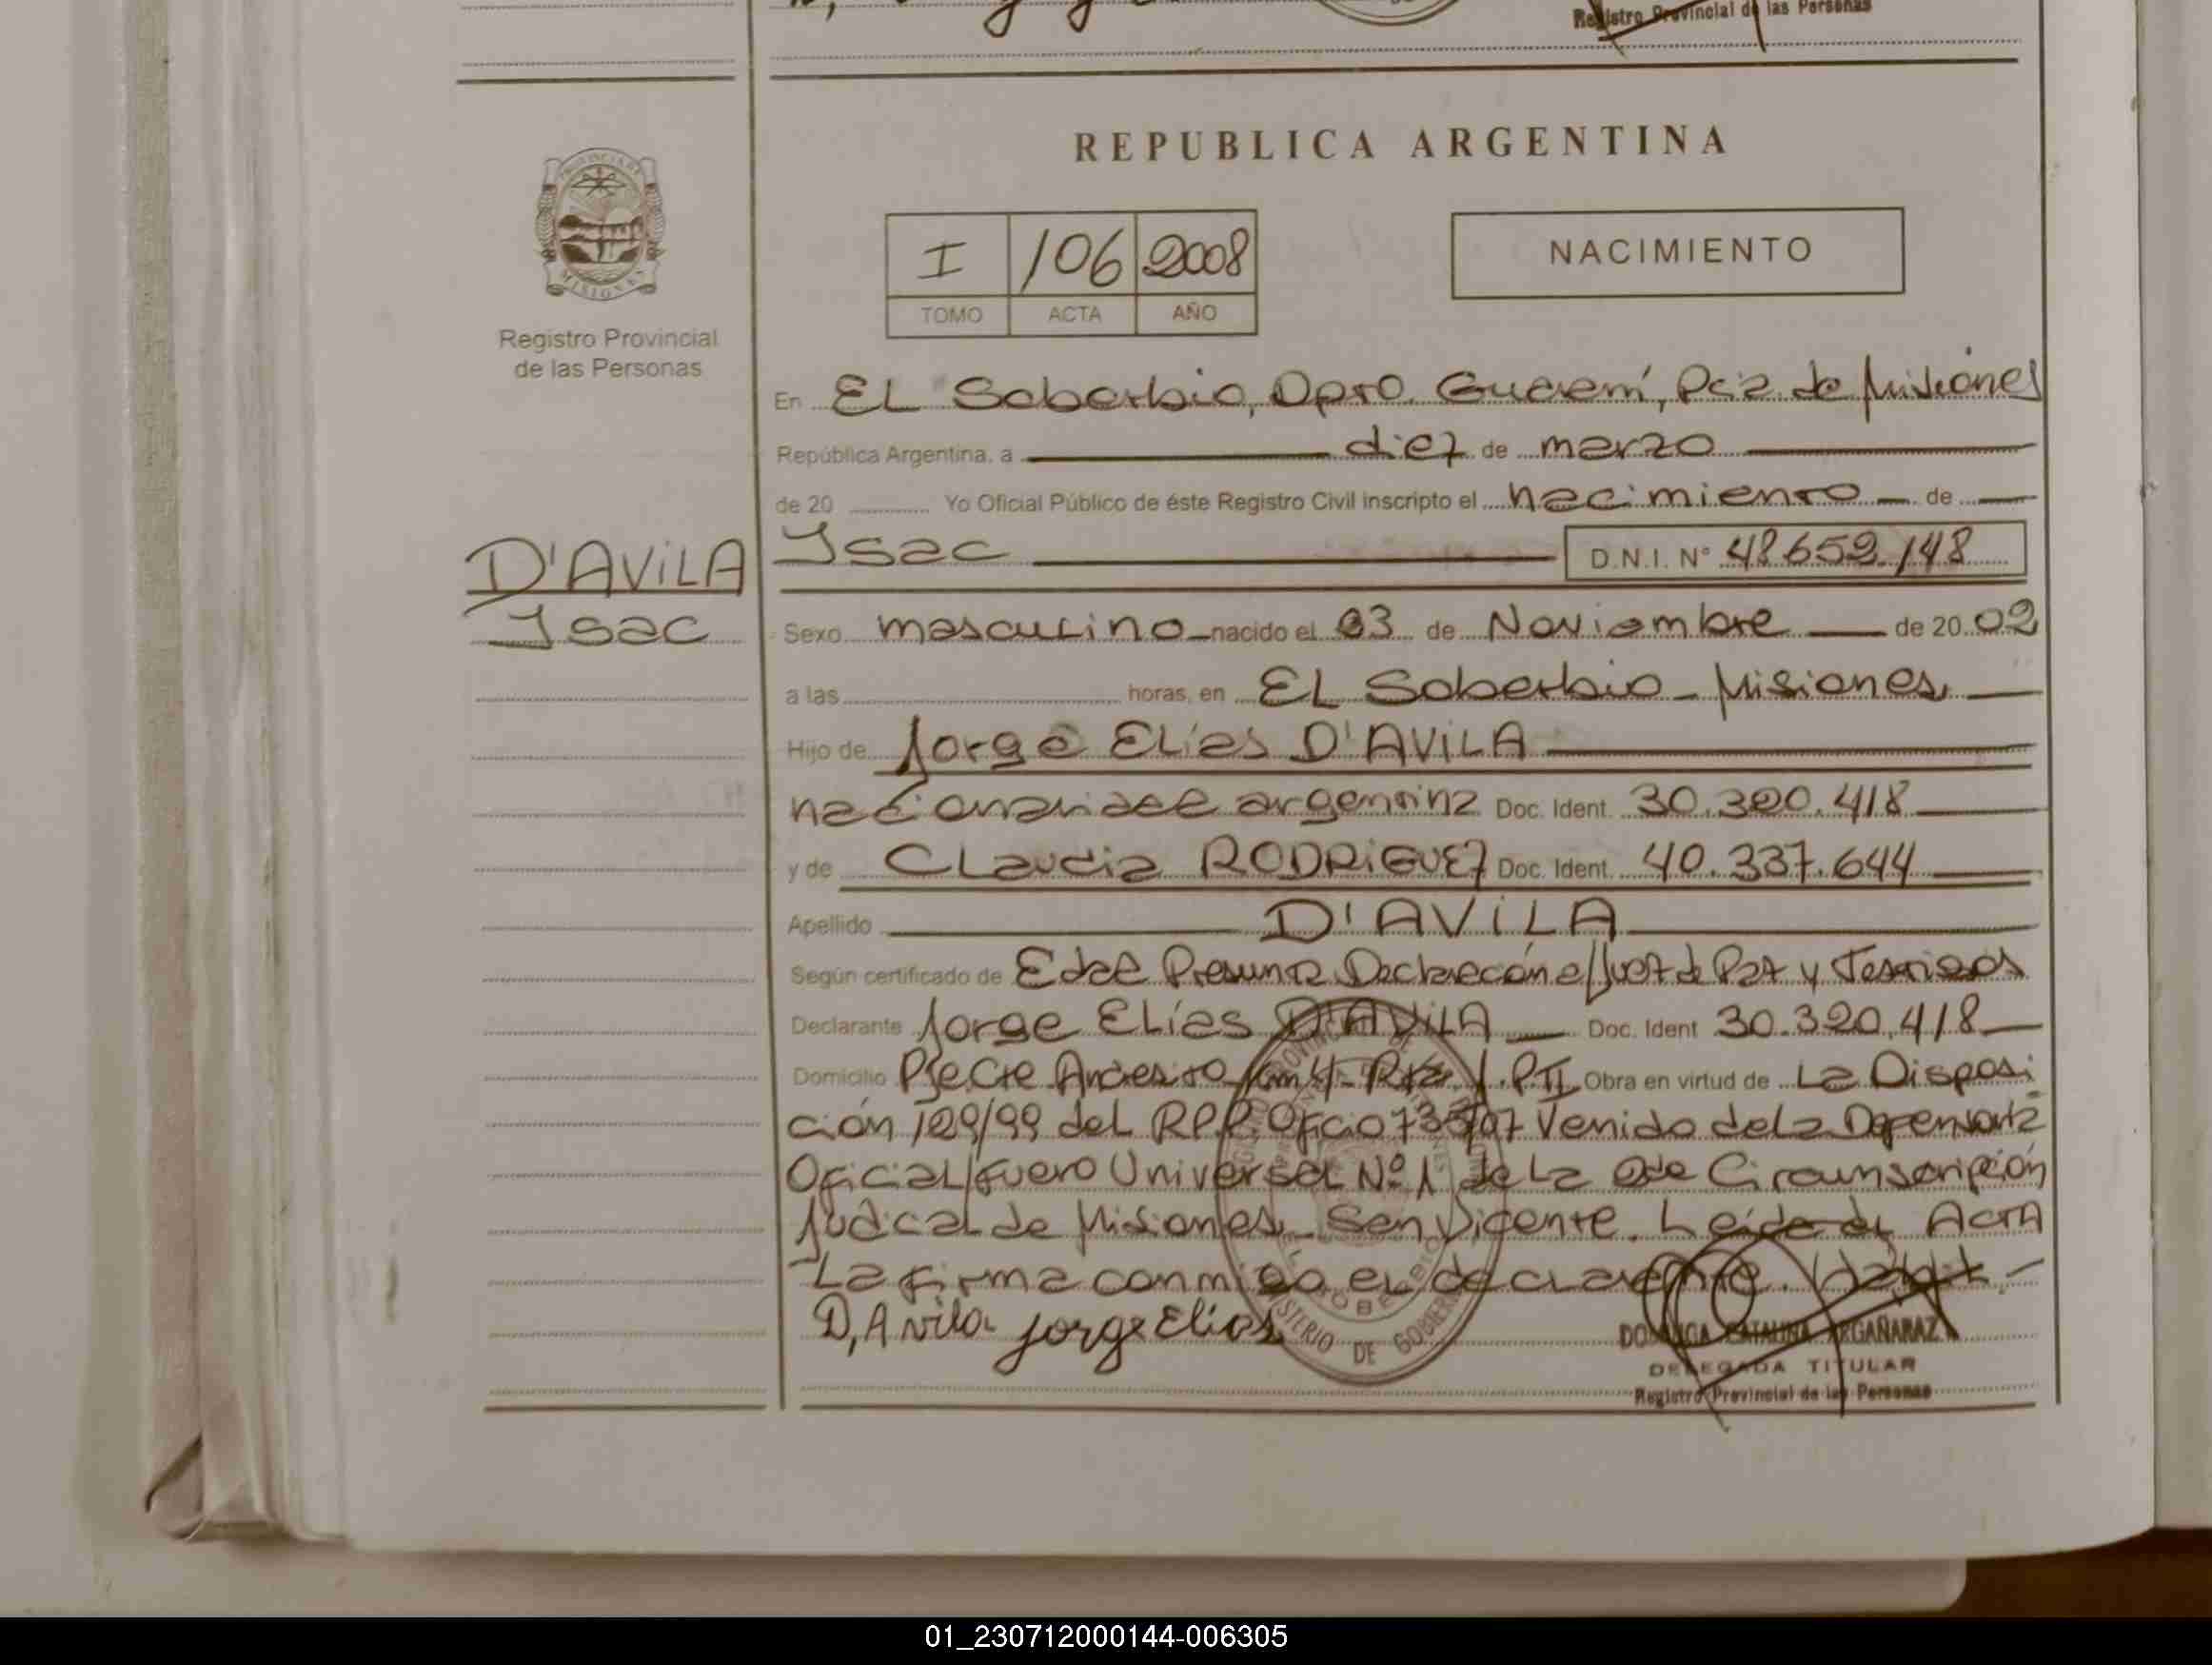 Registro Provincial de las Personas
REPUBLICA ARGENTINA
PROVINCIA DE
MISIONES
Registro Provincial
de las Personas
I 106 2008
TOMO ACTA AÑO
NACIMIENTO
En EL Soberbio, Dpto. Guaraní, Pcia. de Misiones
República Argentina, a diez de marzo
de 20 Yo Oficial Público de éste Registro Civil inscripto el nacimiento de
D'AVILA
Isac
Isac D.N.I. Nº 48.652.148
Sexo masculino nacido el 03 de Noviembre de 20 02
a las horas, en EL Soberbio - Misiones
Hijo de Jorge Elías D'AVILA
nacionalidad argentina Doc. Ident. 30.320.418
y de Claudia RODRIGUEZ Doc. Ident. 40.337.644
Apellido D'AVILA
Según certificado de Edad Presunta Declaración a/Juez de Paz y Testigos
Declarante Jorge Elías D'AVILA Doc. Ident 30.320.418
Domicilio Pje Cte Andresito Km 4 - Rta P.II Obra en virtud de La Disposi
ción 129/99 del R.P.P. Oficio 735/07 Venido de la Defensoría
Oficial/fuero Universal Nº 1 de La 2da Circunscripción
Judicial de Misiones San Vicente. Leída el ActA
La firma conmigo el declarante.
D,Avila Jorge Elías
MINISTERIO DE GOBIERNO
EL SOBERBIO
DOMINGA CATALINA ARGAÑARAZ
DELEGADA TITULAR
Registro Provincial de las Personas
01_230712000144-006305